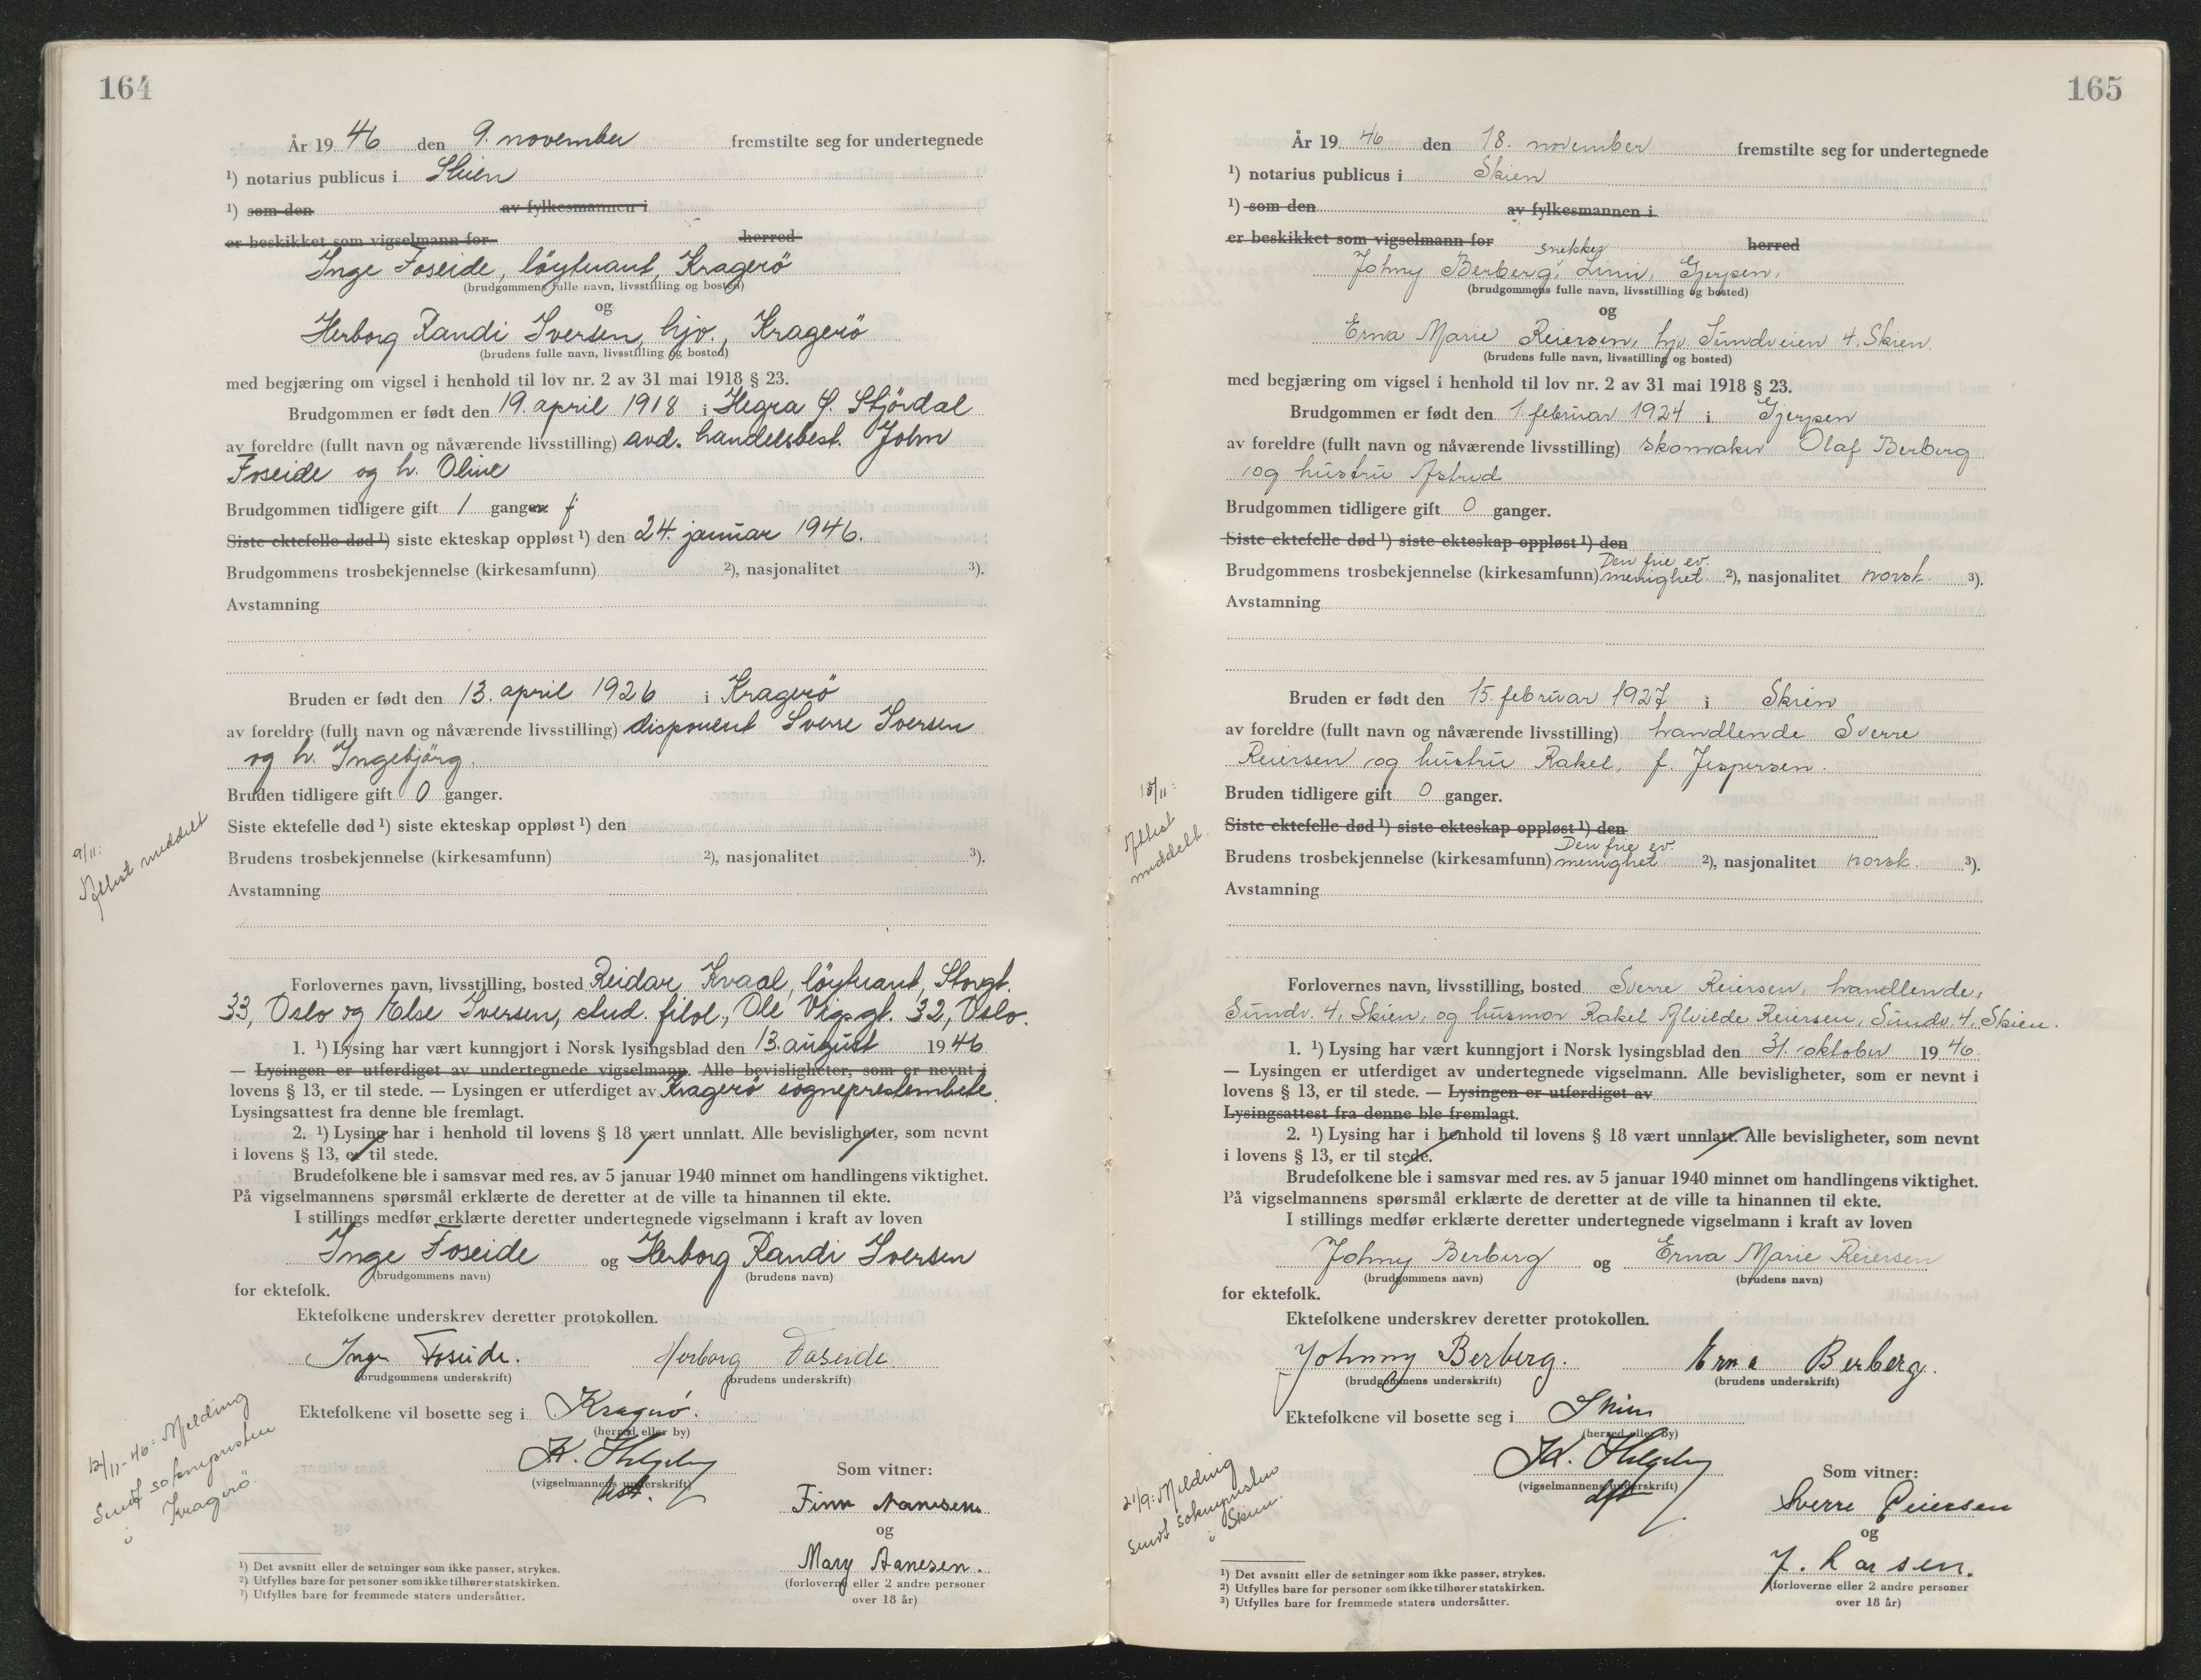 164
År 19 46 den 9. november fremstilte seg for undertegnede
¹) notarius publicus i Skien
¹) som den av fylkesmannen i
er beskikket som vigselmann for herred
Inge Foseide, löytnant, Kragerö
(brudgommens fulle navn, livsstilling og bosted)
og
Herborg Randi Iversen, hjv., Kragerö
(brudens fulle navn, livsstilling og bosted)
med begjæring om vigsel i henhold til lov nr. 2 av 31 mai 1918 § 23.
Brudgommen er født den 19. april 1918 i Hegra p. Stjördal
av foreldre (fullt navn og nåværende livsstilling) avd. handelsbest. John
Foseide og h. Oline
Brudgommen tidligere gift 1 ganger
Siste ektefelle død ¹) siste ekteskap oppløst ¹) den 24. januar 1946.
Brudgommens trosbekjennelse (kirkesamfunn) ²), nasjonalitet ³).
Avstamning
Bruden er født den 13. april 1926 i Kragerö
av foreldre (fullt navn og nåværende livsstilling) disponent Sverre Iversen
og h. Ingebjörg.
Bruden tidligere gift 0 ganger.
Siste ektefelle død ¹) siste ekteskap oppløst ¹) den
9/11:
Attest meddelt
Brudens trosbekjennelse (kirkesamfunn) ²), nasjonalitet ³).
Avstamning
Forlovernes navn, livsstilling, bosted Reidar Kvaal, löytnant, Storgt.
33, Oslo og Else Iversen, stud. filol., Ole Vigsgt. 32, Oslo.
1. ¹) Lysing har vært kunngjort i Norsk lysingsblad den 13. august 19 46
— Lysingen er utferdiget av undertegnede vigselmann. Alle bevisligheter, som er nevnt i
lovens § 13, er til stede. — Lysingen er utferdiget av Kragerö sogneprestembete.
Lysingsattest fra denne ble fremlagt.
2. ¹) Lysing har i henhold til lovens § 18 vært unnlatt. Alle bevisligheter, som nevnt
i lovens § 13, er til stede.
Brudefolkene ble i samsvar med res. av 5 januar 1940 minnet om handlingens viktighet.
På vigselmannens spørsmål erklærte de deretter at de ville ta hinannen til ekte.
I stillings medfør erklærte deretter undertegnede vigselmann i kraft av loven
Inge Foseide og Herborg Randi Iversen
(brudgommens navn) (brudens navn)
for ektefolk.
Ektefolkene underskrev deretter protokollen.
Inge Foseide. Herborg Foseide
(brudgommens underskrift) (brudens underskrift)
Ektefolkene vil bosette seg i Kragerö.
(herred eller by)
12/11-46: Melding
sendt soknepresten
i Kragerö.
K. Helgeby
(vigselmannens underskrift)
Som vitner:
Finn Aanesen
og
Mary Aanesen.
(forloverne eller 2 andre personer
over 18 år)
¹) Det avsnitt eller de setninger som ikke passer, strykes.
²) Utfylles bare for personer som ikke tilhører statskirken.
³) Utfylles bare for fremmede staters undersåtter.
165
År 19 46 den 18. november fremstilte seg for undertegnede
¹) notarius publicus i Skien
¹) som den av fylkesmannen i
er beskikket som vigselmann for herred
snekker
Johny Berberg, Limi, Gjerpen,
(brudgommens fulle navn, livsstilling og bosted)
og
Erna Marie Reiersen, hjv. Sundveien 4, Skien.
(brudens fulle navn, livsstilling og bosted)
med begjæring om vigsel i henhold til lov nr. 2 av 31 mai 1918 § 23.
Brudgommen er født den 1. februar 1924 i Gjerpen
av foreldre (fullt navn og nåværende livsstilling) skomaker Olaf Berberg
og hustru Astrid
Brudgommen tidligere gift 0 ganger.
Siste ektefelle død ¹) siste ekteskap oppløst ¹) den
Den frie ev.
Brudgommens trosbekjennelse (kirkesamfunn) menighet ²), nasjonalitet norsk. ³).
Avstamning
Bruden er født den 15. februar 1927 i Skien
av foreldre (fullt navn og nåværende livsstilling) handlende Sverre
Reiersen og hustru Rakel, f. Jespersen.
Bruden tidligere gift 0 ganger.
Siste ektefelle død ¹) siste ekteskap oppløst ¹) den
Attest
meddelt.
Den frie ev.
Brudens trosbekjennelse (kirkesamfunn) menighet ²), nasjonalitet norsk. ³).
Avstamning
Forlovernes navn, livsstilling, bosted Sverre Reiersen, handlende,
Sundv. 4, Skien, og husmor Rakel Alvilde Reiersen, Sundv. 4, Skien.
1. ¹) Lysing har vært kunngjort i Norsk lysingsblad den 31. oktober 19 46.
— Lysingen er utferdiget av undertegnede vigselmann. Alle bevisligheter, som er nevnt i
lovens § 13, er til stede. — Lysingen er utferdiget av
Lysingsattest fra denne ble fremlagt.
2. ¹) Lysing har i henhold til lovens § 18 vært unnlatt. Alle bevisligheter, som nevnt
i lovens § 13, er til stede.
Brudefolkene ble i samsvar med res. av 5 januar 1940 minnet om handlingens viktighet.
På vigselmannens spørsmål erklærte de deretter at de ville ta hinannen til ekte.
I stillings medfør erklærte deretter undertegnede vigselmann i kraft av loven
Johny Berberg og Erna Marie Reiersen
(brudgommens navn) (brudens navn)
for ektefolk.
Ektefolkene underskrev deretter protokollen.
Johnny Berberg. Erna Berberg.
(brudgommens underskrift) (brudens underskrift)
Ektefolkene vil bosette seg i Skien
(herred eller by)
21/9: Melding
sendt soknepresten
i Skien.
K. Helgeby
(vigselmannens underskrift)
Som vitner:
Sverre Reiersen
og
J. Larsen.
(forloverne eller 2 andre personer
over 18 år)
¹) Det avsnitt eller de setninger som ikke passer, strykes.
²) Utfylles bare for personer som ikke tilhører statskirken.
³) Utfylles bare for fremmede staters undersåtter.